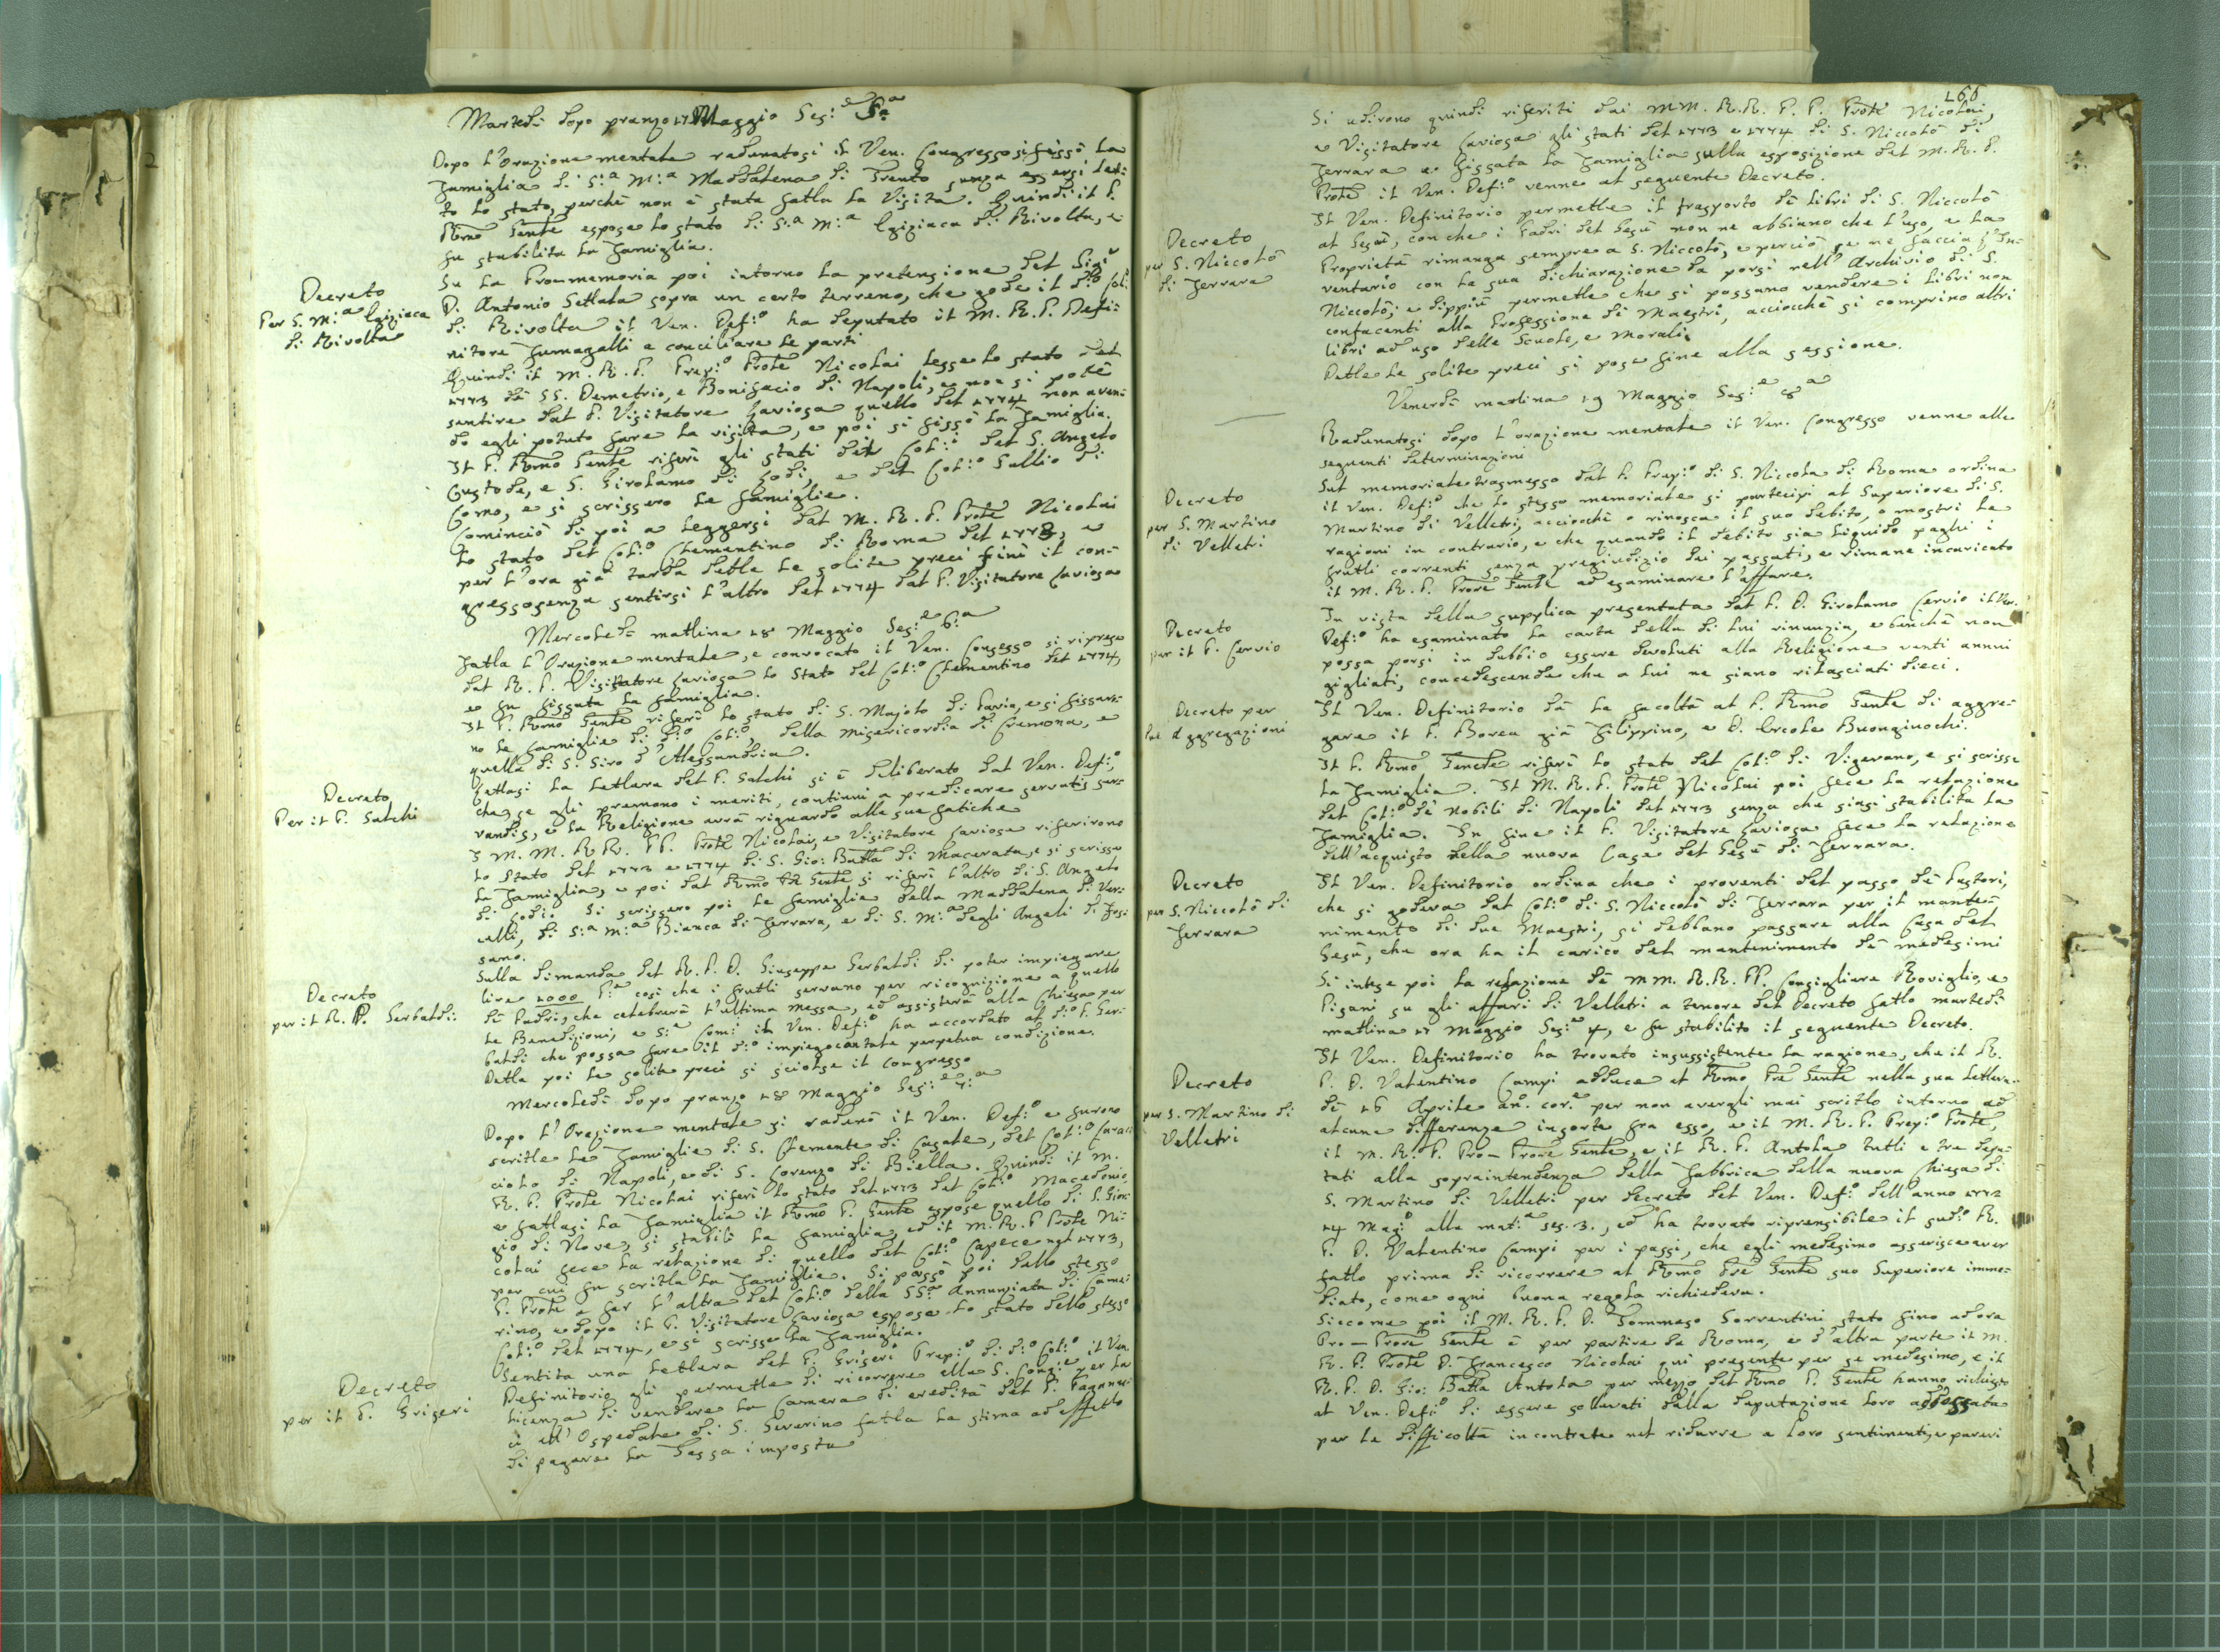 Martedì dopo pranzo 17 Maggio Ses:e 5a
Dopo l'Orazione mentale radunatosi il Ven. Congresso si fissò la
famiglia di S:a M:a Maddalena di Trento senza essersi let:
to lo stato, perchè non è stata fatta la Visita. Quindi il P.
Rmo Gente espose lo stato di S:a M:a Egiziaca di Rivolta, e
fu stabilita la famiglia.
Decreto
Per S. M:a Egiziaca
di Rivolta
Su la Pro-memoria poi intorno la pretensione del Sigr
D. Antonio Settala sopra un certo terreno, che gode il d:o Col:
di Rivolta il Ven. Def:o ha deputato il M. R. P. Defi:
nitore Fumagalli a conciliare le parti
Quindi il M. R. P. Prep:o Prole Nicolai lesse lo stato del
1773 de SS. Demetrio, e Bonifacio di Napoli, e non si potè
sentire dal P. Visitatore Caviosa quello del 1774 non aven:
do egli potuto fare la visita, e poi si fissò la famiglia.
Il P. Rmo Gente riferì gli stati del Col:i del S. Angelo
Custode, e S. Girolamo di Lodi, e del Col:o Gallio di
Como, e si scrissero le famiglie.
Cominciò di poi a leggersi dal M. R. P. Prole Nicolai
lo stato del Col:o Clementino di Roma del 1773, e
per l'ora già tarda dette le solite preci finì il con:
gresso senza sentirsi l'altro del 1774 dal P. Visitatore Caviosa
Mercoledì mattina 18 Maggio Ses:e 6:a
Fatta l'Orazione mentale, e convocato il Ven. Consesso si riprese
dal R. P. Visitatore Caviosa lo Stato del Col:o Clementino del 1774,
e fu fissata la famiglia.
Il P. Rmo Gente riferì lo stato di S. Majolo di Pavia, e si fissaro:
no le famiglie di d:o Col:o, della Misericordia di Cremona, e
quella di S. Siro d'Alessandria.
Decreto
Per il P. Salchi
Lettasi la Lettera del P. Salchi si è deliberato dal Ven. Def:o,
che se gli premono i meriti, continui a predicare servatis ser:
vandis, e la Religione avrà riguardo alle sue fatiche
I M. M. R R. P P. Prole Nicolai, e Visitatore Caviosa riferirono
lo Stato del 1773 e 1774 di S. Gio: Batta di Macerata, e si scrisse
la famiglia, e poi dal Rmo Pre Gente si riferì l'altro di S. Angelo
di Lodi. Si scrissero poi le famiglie della Maddalena di Ver:
celli, di S:a M:a Bianca di Ferrara, e di S. M:a degli Angeli di Fos:
sano.
Decreto
per il R. P. Gerbaldi:
Sulla dimanda del R. P. D. Giuseppe Gerbaldi di poter impiegare
lire 1000 così che i frutti servano per ricognizione a quello
de Padri, che celebrerà l'ultima messa, ed assisterà alla Chiesa per
le Benedizioni, e S:e Com:i il Ven. Def:o ha accordato al d:o P. Ger:
baldi che possa fare il d:o impiego cantate perpetua condizione.
Dette poi le solite preci si sciolse il Congresso
Mercoledì dopo pranzo 18 Maggio Ses:e 7:a
Dopo l'Orazione mentale si radunò il Ven. Def:o e furono
scritte le famiglie di S. Clemente di Casale, del Col:o Carac:
ciolo di Napoli, e di S. Lorenzo di Biella. Quindi il M.
R. P. Prole Nicolai riferì lo stato del 1773 del Col:o Macedonio,
e fattasi la famiglia il Rmo P. Gente espose quello di S. Gior:
gio di Nove, si stabilì la famiglia, ed il M. R. P. Prole Ni:
colai fece la relazione di quello del Col:o Capece nel 1773,
per cui fu scritta la famiglia. Si passò poi dallo stesso
P. Prole a far l'altra del Col:o della SS:a Annunziata di Came:
rino, e dopo il P. Visitatore Caviosa espose lo stato dello stesso
Col:o del 1774, e si scrisse la famiglia.
Decreto
per il P. Griseri
Sentita una Lettera del P. Griseri Prep:o di d:o Col:o il Ven.
Definitorio gli permette di ricorrere alla S. Cong:e per la
licenza di vendere la Camera di eredità del P. Paganuc:
ci all'Ospedale di S. Severino fatta la stima ad effetto
di pagare la Tassa imposta
166
Si udirono quindi riferiti dai MM. R.R. P. P. Prole Nicolai,
e Visitatore Caviosa gli stati del 1773 e 1774 di S. Niccolò di
Ferrara e fissata la famiglia sulla esposizione del M. R. P.
Prole il Ven. Def:o venne al seguente Decreto.
Decreto
per S. Niccolò
di Ferrara
Il Ven. Definitorio permette il trasporto de libri di S. Niccolò
al Gesù, con che i Padri del Gesù non ne abbiano che l'uso, e la
Proprietà rimanga sempre a S. Niccolò, e perciò se ne faccia l'In:
ventario con la sua dichiarazione da porsi nell'Archivio di S.
Niccolò; e dippiù permette che si possano vendere i libri non
confacenti alla Professione di Maestri, acciocchè si comprino altri
libri ad uso delle Scuole, e Morali.
Dette le solite preci si pose fine alla sessione.
Venerdì mattina 19 Maggio Ses:e 8a
Radunatosi dopo l'orazione mentale il Ven. Congresso venne alle
seguenti determinazioni
Decreto
per S. Martino
di Velletri
Sul memoriale trasmesso dal P. Prep:o di S. Niccola di Roma ordina
il Ven. Def:o che lo stesso memoriale si partecipi al Superiore di S.
Martino di Velletri, acciocchè o rinosca il suo debito, o mostri le
ragioni in contrario, e che quando il debito sia liquido paghi i
frutti correnti senza pregiudizio dei passati, e rimane incaricato
il M. R. P. Prore Gente ad esaminare l'affare.
Decreto
per il P. Cervio
In vista della supplica presentata dal P. D. Girolamo Cervio il Ven.
Def:o ha esaminato la carta della di lui rinunzia, e benchè non
possa porsi in dubbio essere devoluti alla Religione venti annui
gigliati, condescende che a lui ne siano rilasciati dieci.
Decreto per
le Aggregazioni
Il Ven. Definitorio dà la facoltà al P. Rmo Gente di aggre:
gare il P. Borea già Filippino, e D. Ercole Buonginochi.
Il P. Rmo Genete riferì lo stato del Col:o di Vigevano, e si scrisse
la famiglia. Il M. R. P. Prole Nicolai poi fece la relazione
del Col:o de nobili di Napoli del 1773 senza che siasi stabilita la
famiglia. In fine il P. Visitatore Caviosa fece la relazione
dell'acquisto della nuova Casa del Gesù di Ferrara.
Decreto
per S. Niccolò di
Ferrara
Il Ven. Definitorio ordina che i proventi del passo de Lastori,
che si godeva dal Col:o di S. Niccolò di Ferrara per il mante:
nimento di due Maestri, si debbano passare alla Casa del
Gesù, che ora ha il carico del mantenimento de medesimi
Si intese poi la relazione de MM. R.R. PP. Consigliare Roviglio, e
Pisani su gli affari di Velletri a tenore del Decreto fatto martedì
mattina 17 Maggio Ses:e 4, e fu stabilito il seguente Decreto.
Decreto
per S. Martino di
Velletri
Il Ven. Definitorio ha trovato insussistente la ragione, che il R.
P. D. Valentino Campi adduce al Rmo Pre Gente nella sua lettera
de 16 Aprile an. cor.e per non avergli mai scritto intorno ad
alcune differenze insorte fra esso, e il M. R. P. Prep:o Prole,
il M. R. P. Pro-Prore Gente, e il R. P. Antola tutti e tre depu:
tati alla sopraintendenza della Fabbrica della nuova Chiesa di
S. Martino di Velletri per decreto del Ven. Def:o dell'anno 1772
14 Mag:o alla mat:a ses. 3., ed ha trovato riprensibile il sud:o R.
P. D. Valentino Campi per i passi, che egli medesimo asserisce aver
fatto prima di ricorrere al Rmo Pre Gente suo Superiore imme:
diato, come ogni buona regola richiedeva.
Siccome poi il M. R. P. D. Tommaso Sorrentini stato fino ad ora
Pro-Prore Gente è per partire da Roma, e d'altra parte il M.
R. P. Prole D. Francesco Nicolai qui presente per se medesimo, e il
R. P. D. Gio: Batta Antola per mezzo del Rmo P. Gente hanno richiesto
al Ven. Def:o di essere sollevati dalla deputazione loro addossata
per le difficoltà incontrate nel ridurre a loro sentimenti, e pareri